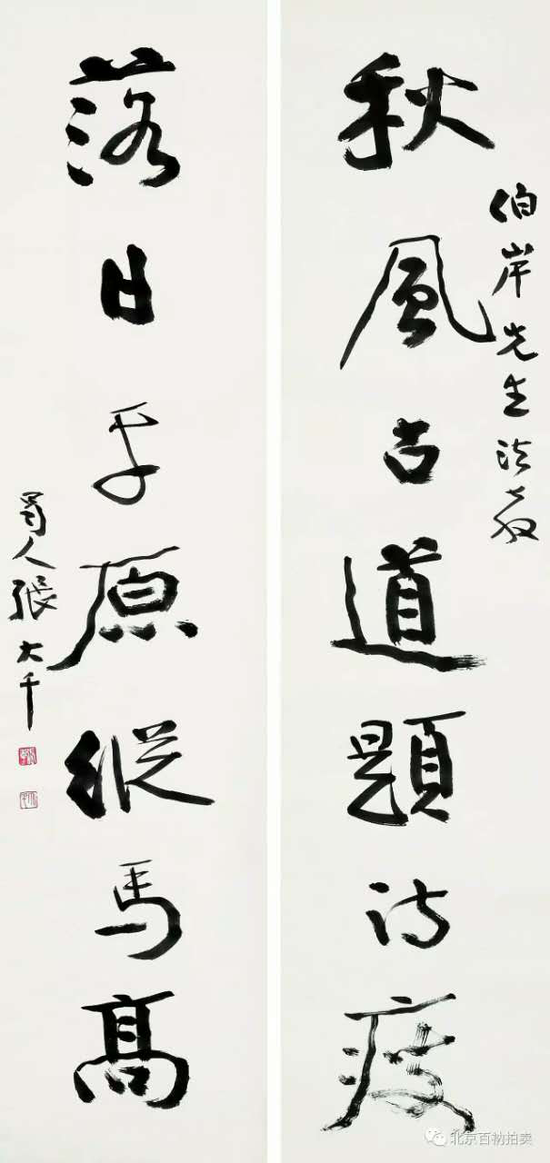 伯岸先生法教
秋風古道題詩瘦
落日平原縱馬高
蜀人張大千
北京百衲拍卖